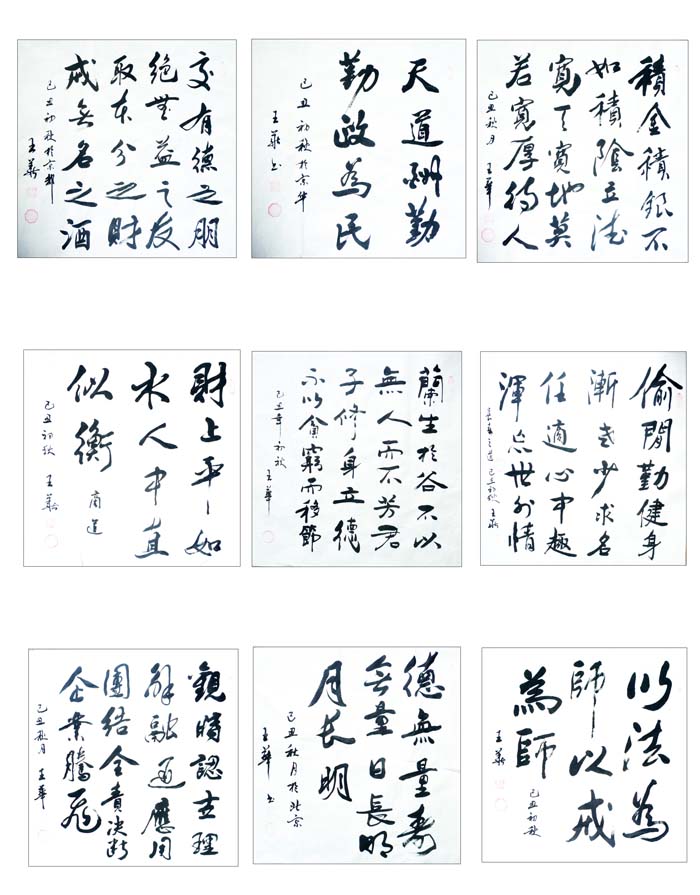 交有德之朋
绝無益之友
取本分之财
戒無名之酒
己丑初秋於京華
王華
天道酬勤
勤政為民
己丑初秋於京华
王華书
積金積銀不
如積陰立德
寬天寬地莫
若寬厚待人
己丑秋月 王華
財上平如
水人中直
似衡 商道
己丑初秋 王華
蘭生於谷不以
無人而不芳君
子修身立德
不以貧窮而移節
己丑年初秋 王華
偷閒勤健身
漸老少求名
任適心中趣
渾忘世外情
己丑初秋 王華
觀時認主理
解融通應用
團结全責决断
企業騰飛
己丑秋月 王華
德無量壽
無量日長明
月长明
己丑秋月於北京
王華书
以法為
師以戒
為師
己丑初秋
王華